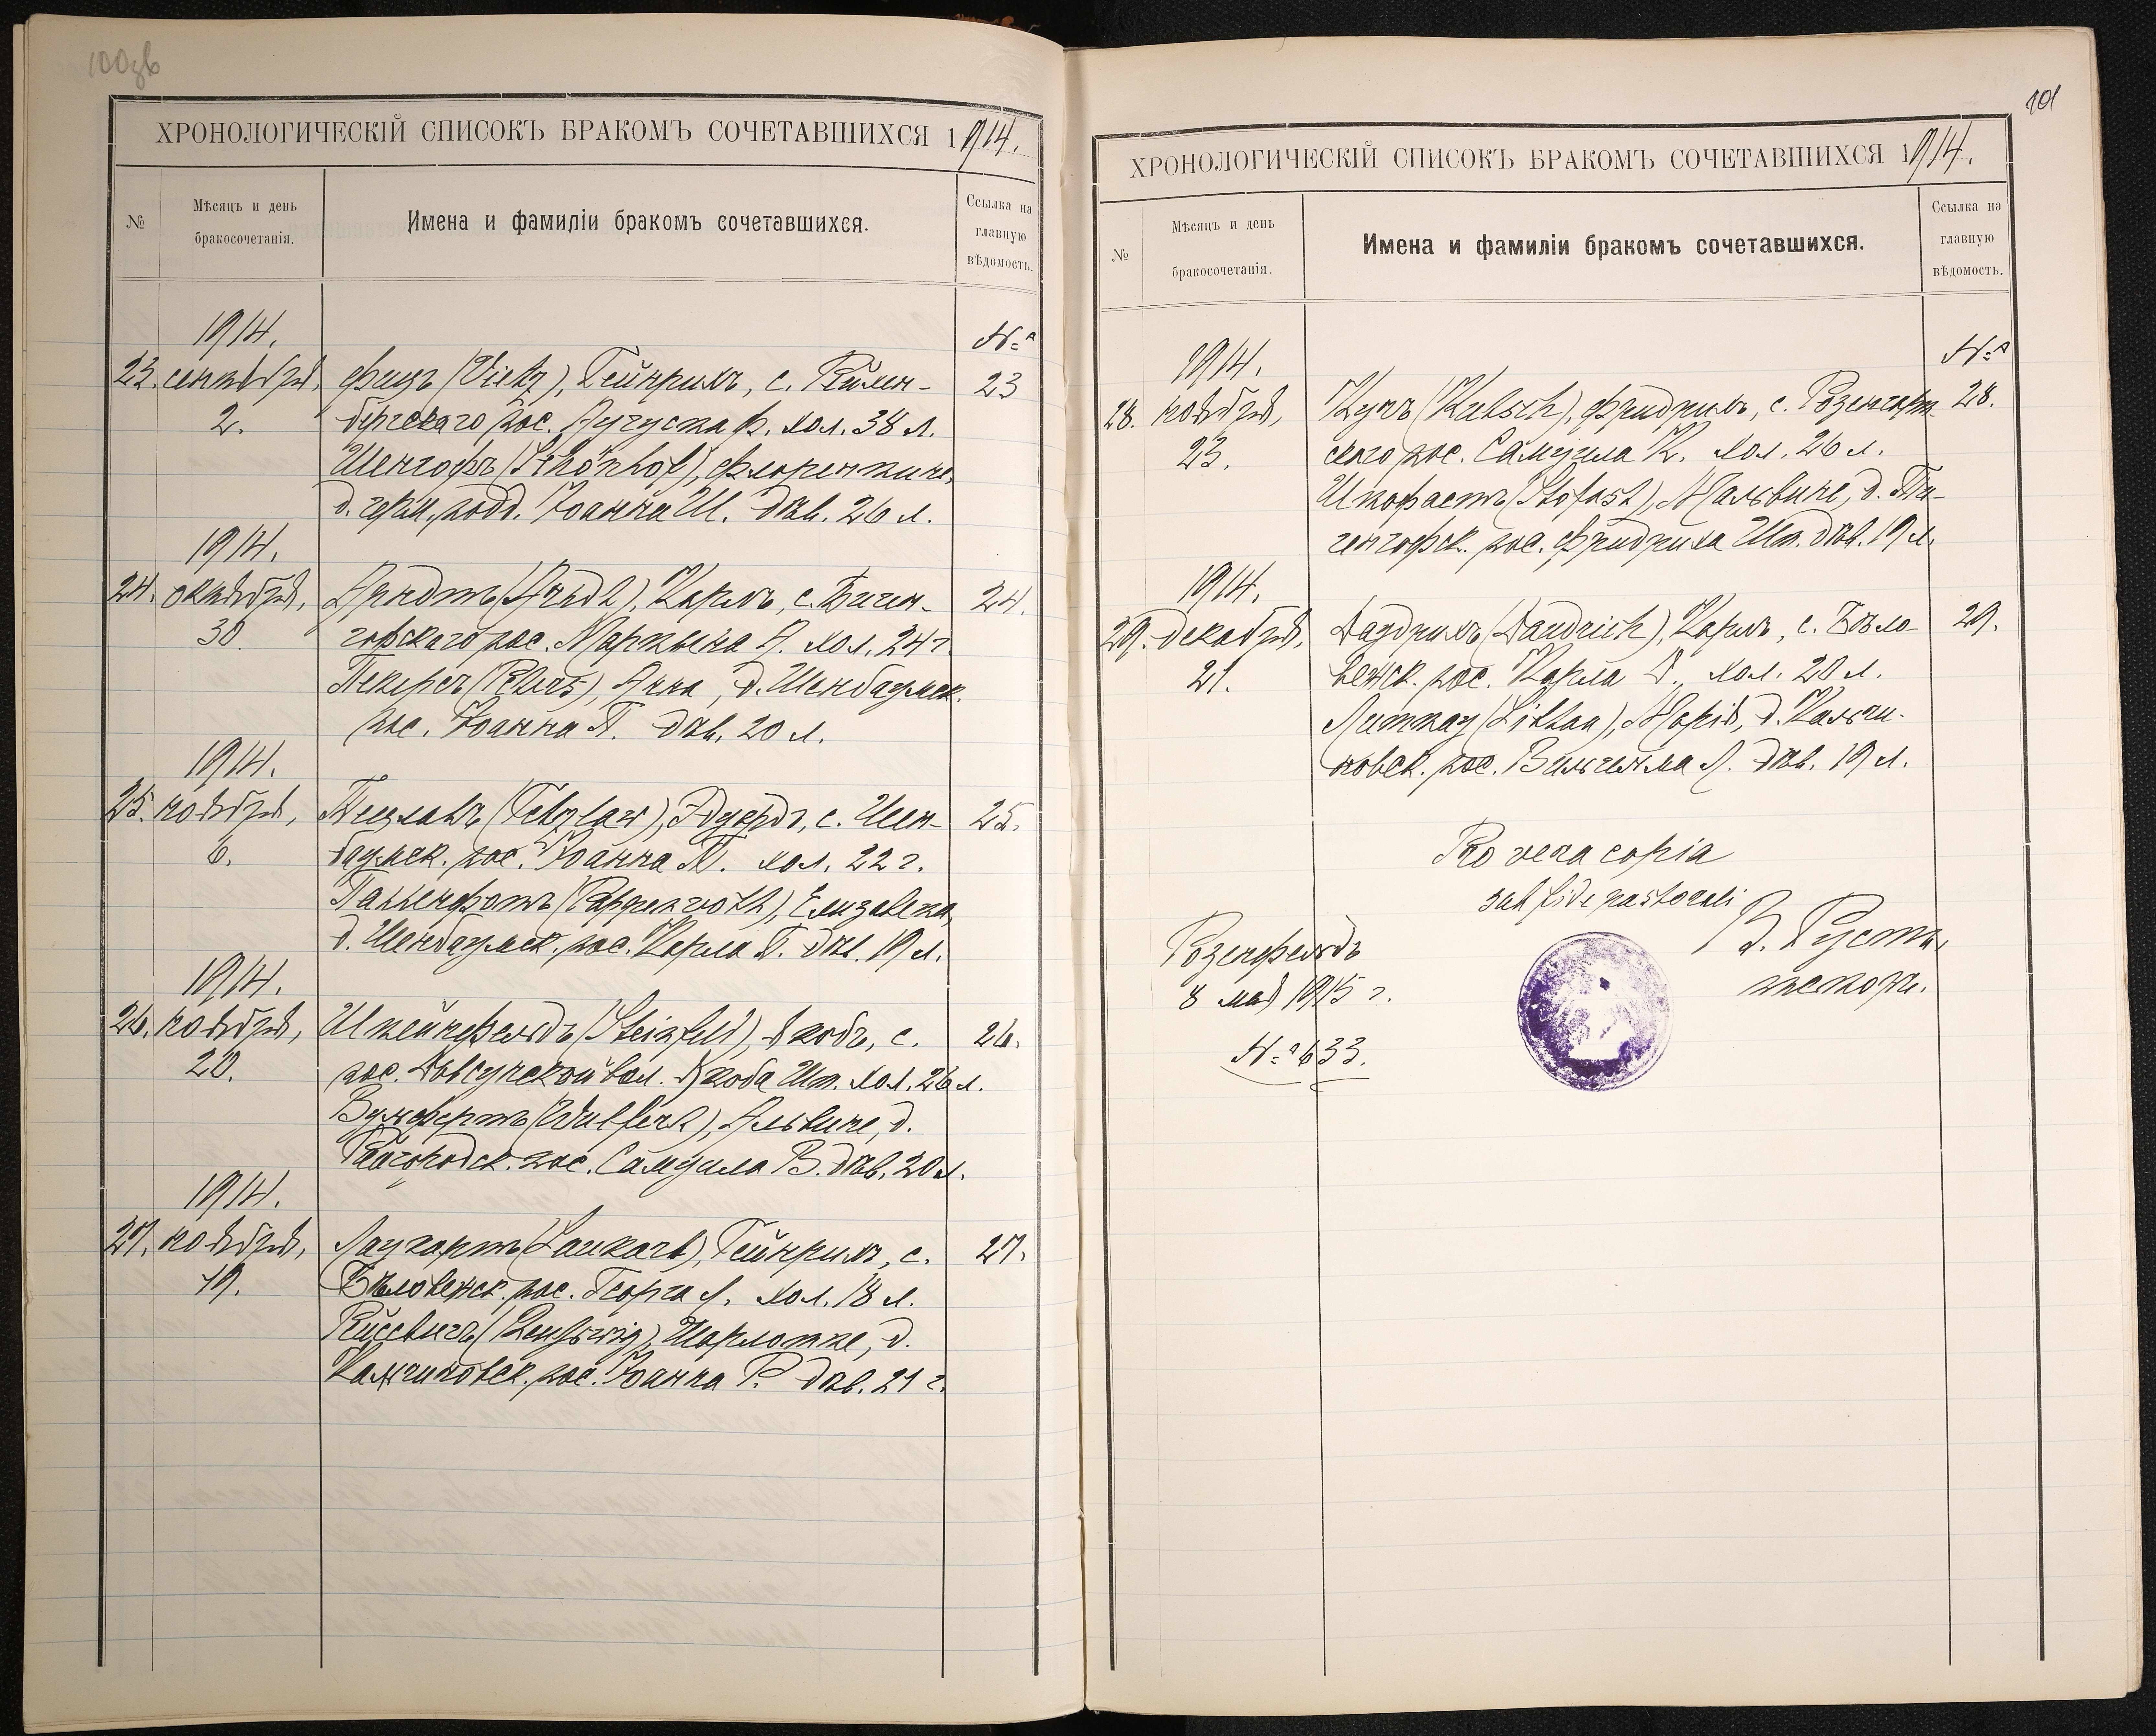 100об
ХРОНОЛОГИЧЕСКІЙ СПИСОКЪ БРАКОМЪ СОЧЕТАВШИХСЯ 1914.
№
Мѣсяцъ и день
бракосочетанія.
Имена и фамиліи бракомъ сочетавшихся.
Ссылка на
главную
вѣдомость.
1914.
№
23. сентября, Фицъ (Vietz), Гейнрихъ, с. 23
2. бергскаго пос. Августа Ф. хол. 38 л.
Шенгофъ (Schönhof), Флорентине,
д. герм. подд. Іоанна Ш. дѣв. 26 л.
1914.
24. октября, Арндтъ (Arndt), Карлъ, с. Тиген- 24.
30. гофскаго пос. Мартына А. хол. 24 г.
Анна, д. Шенбаумск.
пос. Іоанна П. дѣв. 20 л.
1914.
25. ноября, Тецлавъ (Tetzlaw), Эдуардъ, с. Шен- 25.
6. баумск. пос. Іоанна Т. хол. 22 г.
Паппенфотъ (Pappenvoth), Елизавета,
д. Шенбаумск. пос. Карла П. дѣв. 19 л.
1914.
26. ноября, Штейнфельдъ (Steinfeld), Якобъ, с. 26.
20. пос. вол. Якоба Шт. хол. 26 л.
Вульфертъ (Wulfert), Альвине, д.
Райгородск. пос. Самуила В. дѣв. 20 л.
1914.
27. ноября, Лаукартъ (Laukart), Гейнрихъ, с. 27.
19. Бѣловежск. пос. Георга Л. хол. 18 л.
Шарлотте, д.
Кальчиновск. пос. Іоанна Р. дѣв. 21 г.
101
ХРОНОЛОГИЧЕСКІЙ СПИСОКЪ БРАКОМЪ СОЧЕТАВШИХСЯ 1914.
№
Мѣсяцъ и день
бракосочетанія.
Имена и фамиліи бракомъ сочетавшихся.
Ссылка на
главную
вѣдомость.
1914.
№
28. ноября, Кучъ (Kutsch), Фридрихъ, с. Розенгарт- 28.
23. скаго пос. Самуила К. хол. 26 л.
Штофастъ (Stofast), Мальвине, д. Ти-
генгофск. пос. Фридриха Шт. дѣв. 19 л.
1914.
29. декабря, Даудрихъ (Daudrich), Карлъ, с. Бѣло- 29.
21. вежск. пос. Карла Д. хол. 20 л.
Литкау (Littkau), Марія, д. Кальчи-
новск. пос. Вильгельма Л. дѣв. 19 л.
Pro vera copia
sub fide pastorali
Розенфельдъ
8 мая 1915 г.
№ 633.